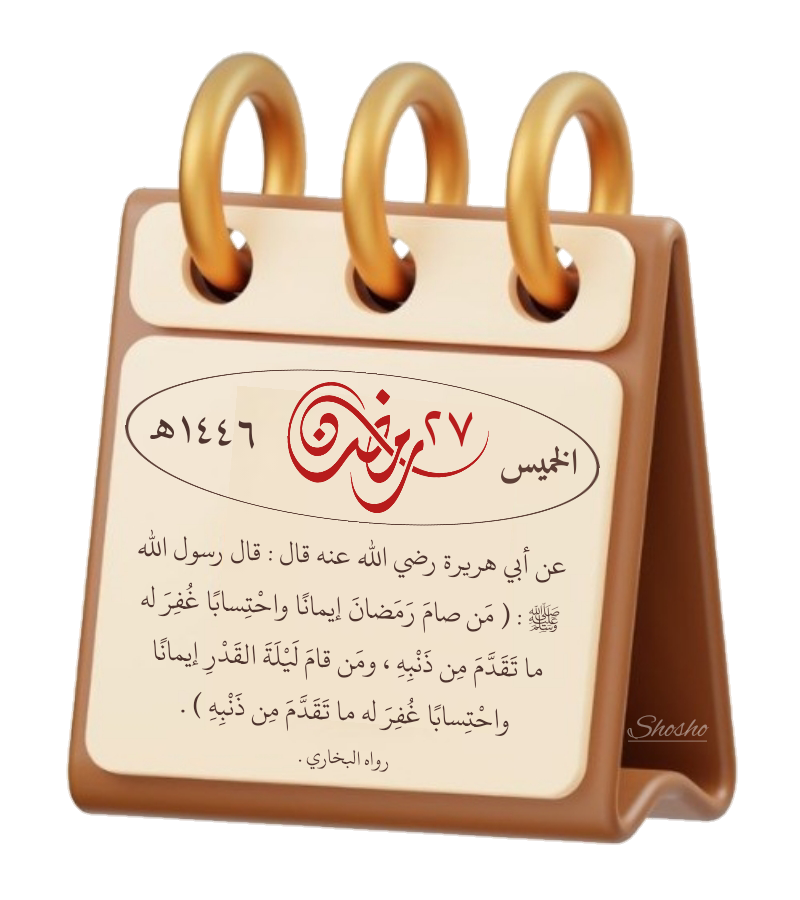 الخميس ٢٧ رمضان ١٤٤٦هـ
عن أبي هريرة رضي الله عنه قال : قال رسول الله
ﷺ : ( مَن صامَ رَمَضانَ إيمانًا واحْتِسابًا غُفِرَ له
ما تَقَدَّمَ مِن ذَنْبِهِ ، ومَن قامَ لَيْلَةَ القَدْرِ إيمانًا
واحْتِسابًا غُفِرَ له ما تَقَدَّمَ مِن ذَنْبِهِ ) .
رواه البخاري .
Shosho